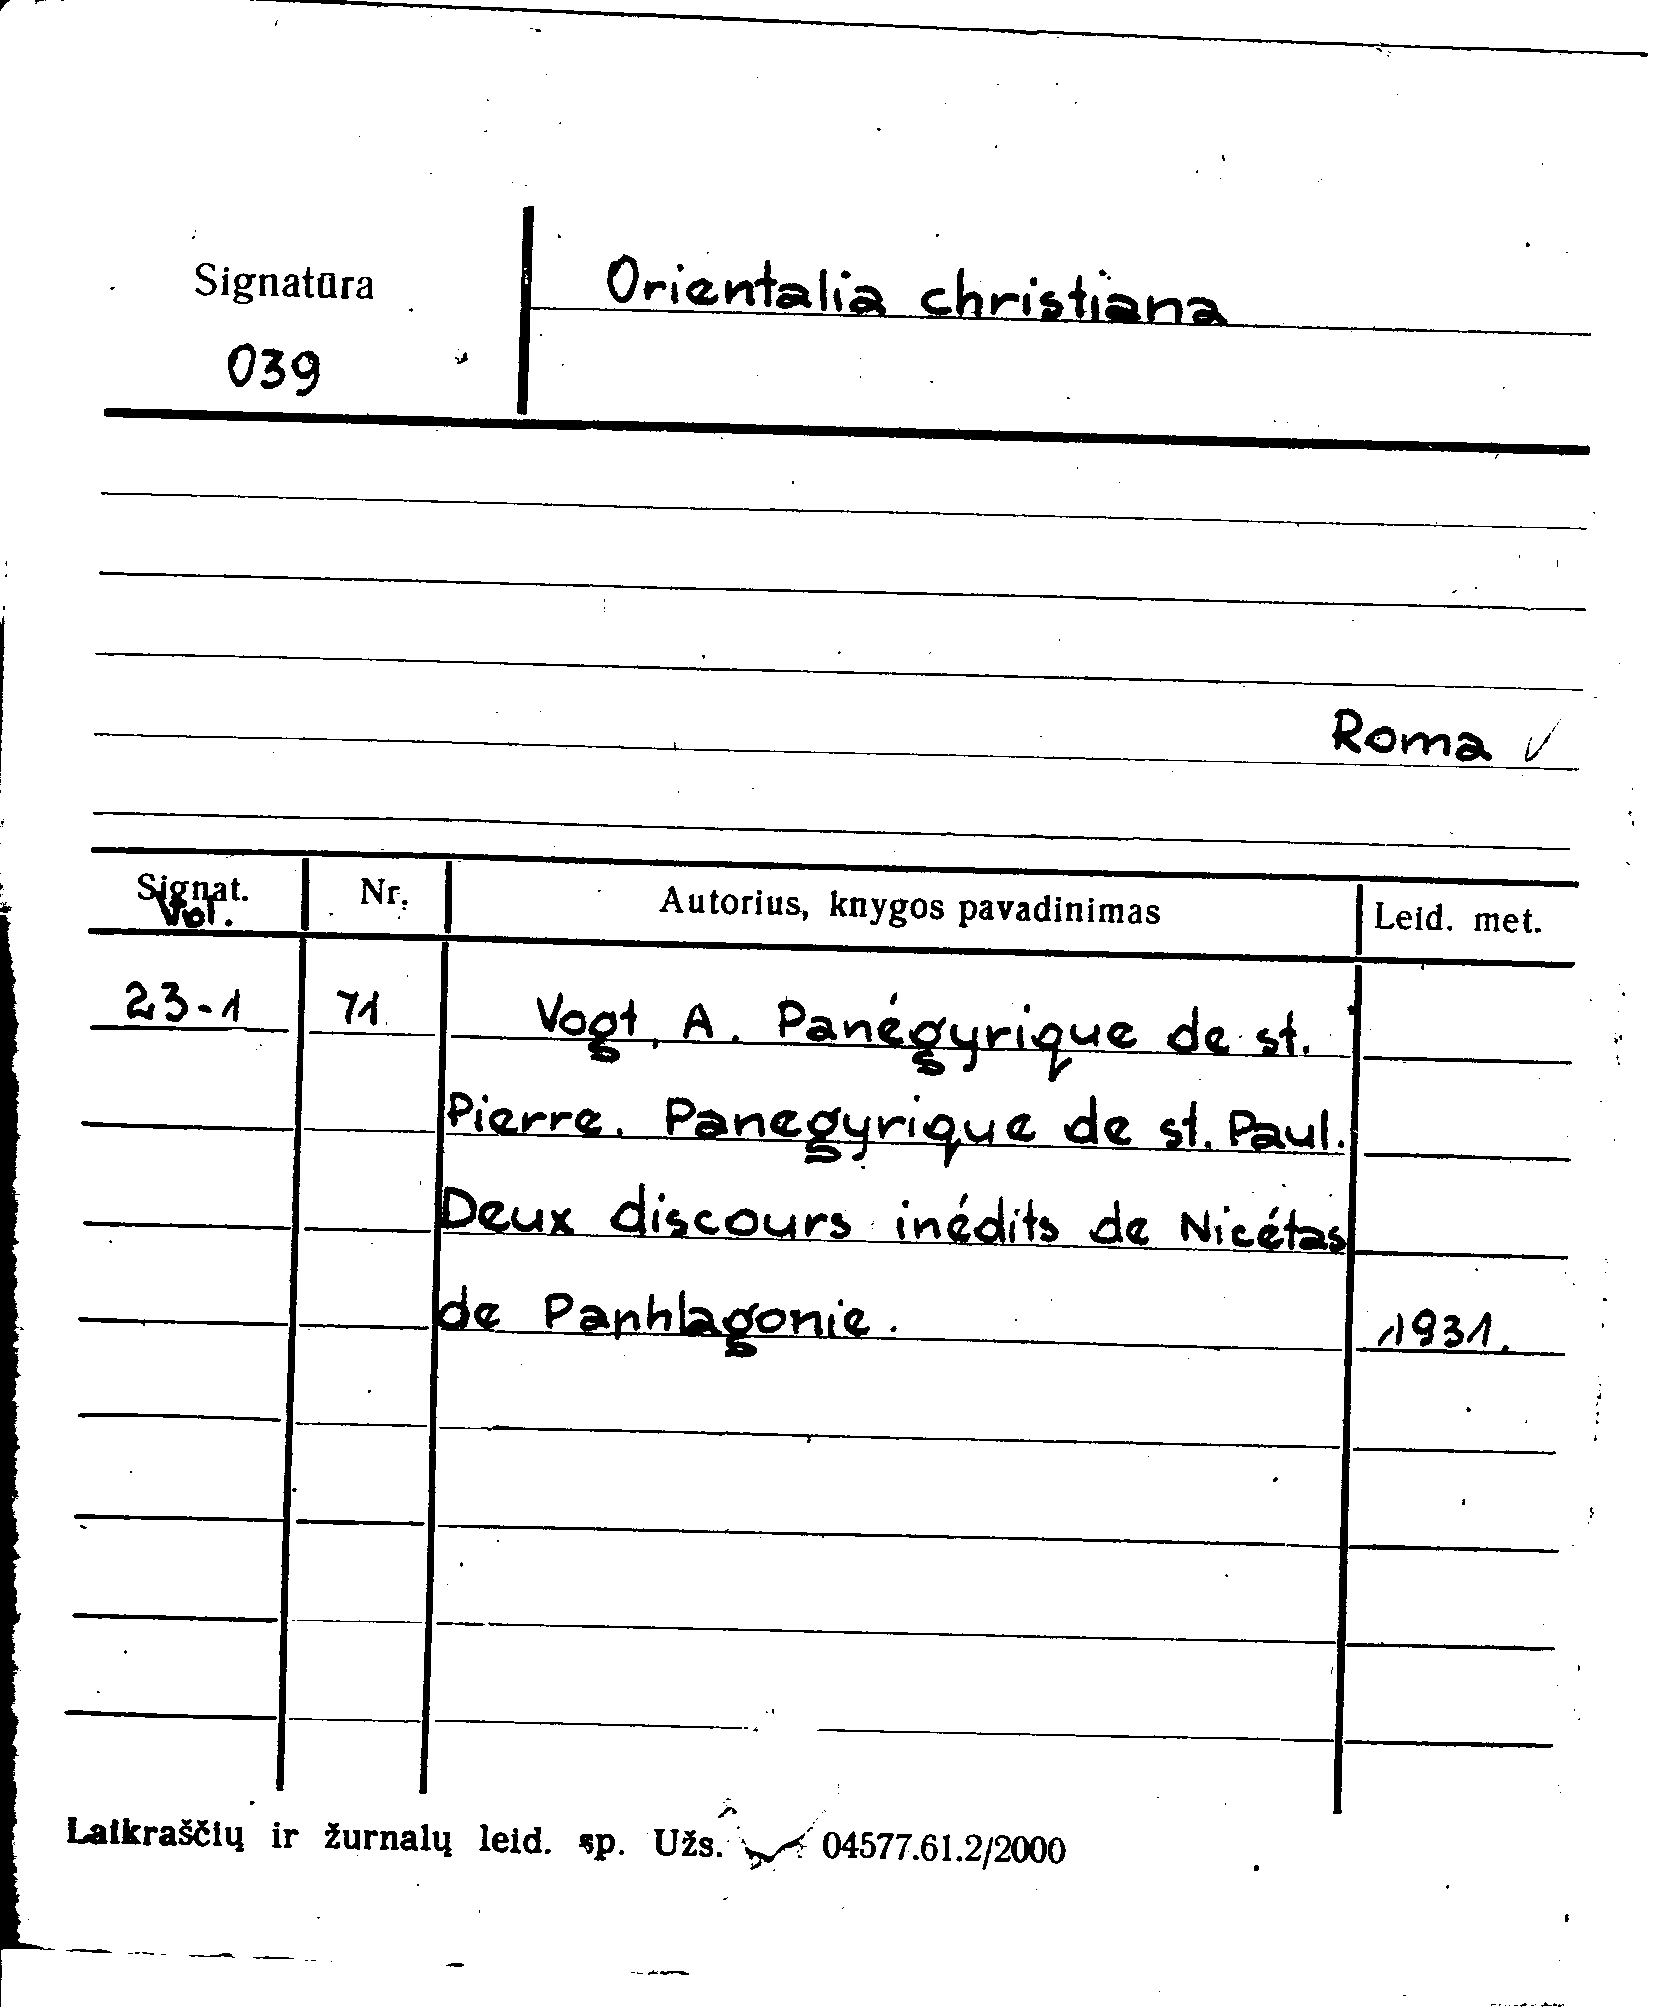 Signatūra
Orientalia christiana
039
Roma ✓
Signat. Nr. Autorius, knygos pavadinimas Leid. met.
Vol.
23-1 71 Vogt, A. Panégyrique de st.
Pierre. Panegyrique de st. Paul.
Deux discours inédits de Nicétas
de Panhlagonie. 1931.
Laikraščių ir žurnalų leid. sp. Užs. 04577.61.2/2000